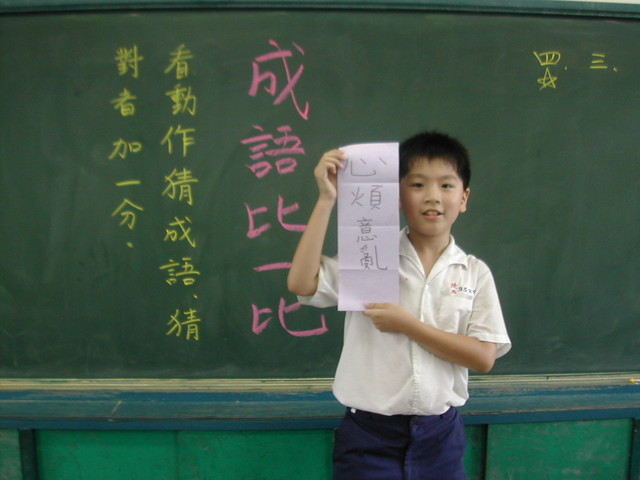 四.三.
心煩意亂
成語比一比
看動作猜成語、猜
對者加一分.